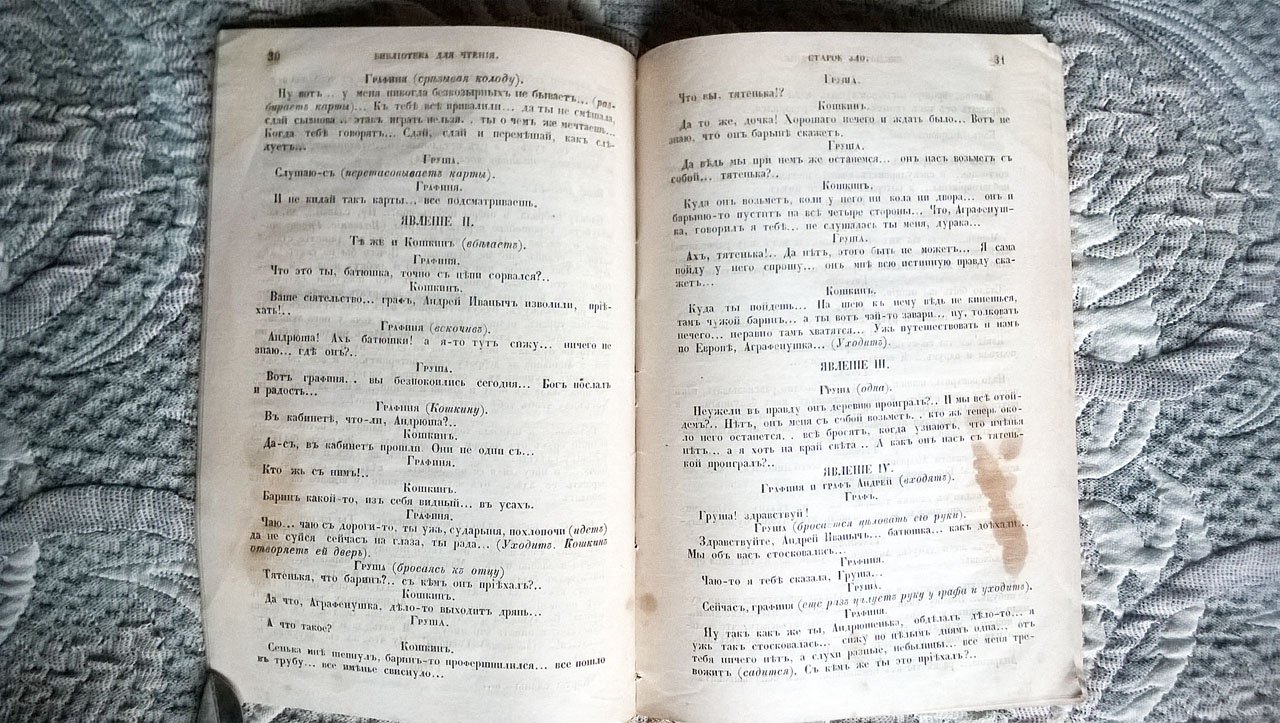 30
БИБЛІОТЕКА ДЛЯ ЧТЕНІЯ.
Графиня (сразивая колоду).
Ну вотъ.. у меня никогда безкозырныхъ не бываетъ... (раз-
бираетъ карты)... Къ тебѣ всѣ привалили... да ты не смѣшала,
сдай сызнова.. этакъ играть нельзя.. ты о чемъ же мечтаешь...
Когда тебѣ говорятъ... Сдай, сдай и перемѣшай, какъ слѣ-
дуетъ...
Груша.
Слушаю-съ (перетасовываетъ карты).
Графиня.
И не кидай такъ карты... все подсматриваешь.
ЯВЛЕНІЕ II.
Тѣ же и Кошкинъ (вбѣгаетъ).
Графиня.
Что это ты, батюшка, точно съ цѣпи сорвался?..
Кошкинъ.
Ваше сіятельство... графъ, Андрей Иванычъ изволили, прiѣ-
хать!..
Графиня (вскочивъ).
Андрюша! Ахъ батюшки! а я-то тутъ сижу... ничего не
знаю... гдѣ онъ?..
Груша.
Вотъ графиня.. вы безпокоились сегодня... Богъ послалъ
и радость...
Графиня (Кошкину).
Въ кабинетѣ, что-ли, Андрюша?..
Кошкинъ.
Да-съ, въ кабинетъ прошли. Они не одни съ...
Графиня.
Кто жь съ нимъ!..
Кошкинъ.
Баринъ какой-то, изъ себя видный... въ усахъ.
Графиня.
Чаю... чаю съ дороги-то, ты ужь, сударыня, похлопочи (идетъ)
да не суйся сейчасъ на глаза, ты рада... (Уходитъ. Кошкинъ
отворяетъ ей дверь).
Груша (бросаясь къ отцу)
Тятенька, что баринъ?.. съ кѣмъ онъ прiѣхалъ?..
Кошкинъ.
Да что, Аграфенушка, дѣло-то выходитъ дрянь...
Груша.
А что такое?
Кошкинъ.
Сенька мнѣ шепнулъ, баринъ-то профершпилился... все пошло
въ трубу... все имѣнье свиснуло...
СТАРОЕ ЗЛО.
31
Груша.
Что вы, тятенька!?
Кошкинъ.
Да то же, дочка! Хорошаго нечего и ждать было... Вотъ не
знаю, что онъ барынѣ скажетъ.
Груша.
Да вѣдь мы при немъ же останемся... онъ насъ возьметъ съ
собой... тятенька?..
Кошкинъ.
Куда онъ возьметъ, коли у него ни кола ни двора... онъ и
барыню-то пуститъ на всѣ четыре стороны... Что, Аграфенуш-
ка, говорилъ я тебѣ... не слушалась ты меня, дурака...
Груша.
Ахъ, тятенька!.. Да нѣтъ, этого быть не можетъ... Я сама
пойду у него спрошу... онъ мнѣ всю истинную правду ска-
жетъ...
Кошкинъ.
Куда ты пойдешь... На шею къ нему вѣдь не кинешься,
тамъ чужой баринъ... а ты вотъ чай-то завари... ну, толковать
нечего... неравно тамъ хватятся... Ужь путешествовать и намъ
по Европѣ, Аграфенушка... (Уходитъ).
ЯВЛЕНІЕ III.
Груша (одна).
Неужели въ правду онъ деревню проигралъ?.. И мы всѣ отой-
демъ?.. Нѣтъ, онъ меня съ собой возьметъ.. кто жь теперь око-
ло него останется.. всѣ бросятъ, когда узнаютъ, что имѣнья
нѣтъ... а я хоть на край свѣта.. А какъ онъ насъ съ тятень-
кой проигралъ?..
ЯВЛЕНІЕ IV.
Графиня и графъ Андрей (входятъ).
Графъ.
Груша! здравствуй!
Груша (бросается цаловать его руки).
Здравствуйте, Андрей Иванычъ... батюшка... какъ доѣхали...
Мы объ васъ стосковались...
Графиня.
Чаю-то я тебѣ сказала, Груша...
Груша.
Сейчасъ, графиня (еще разъ цѣлуетъ руку у графа и уходитъ).
Графиня.
Ну такъ какъ же ты, Андрюшенька, обдѣлалъ дѣло-то... я
ужь такъ стосковалась... сижу по цѣлымъ днямъ одна... отъ
тебя ничего нѣтъ, а слухи разные, небылицы... все меня тре-
вожитъ (садится). Съ кѣмъ же ты это прiѣхалъ?..